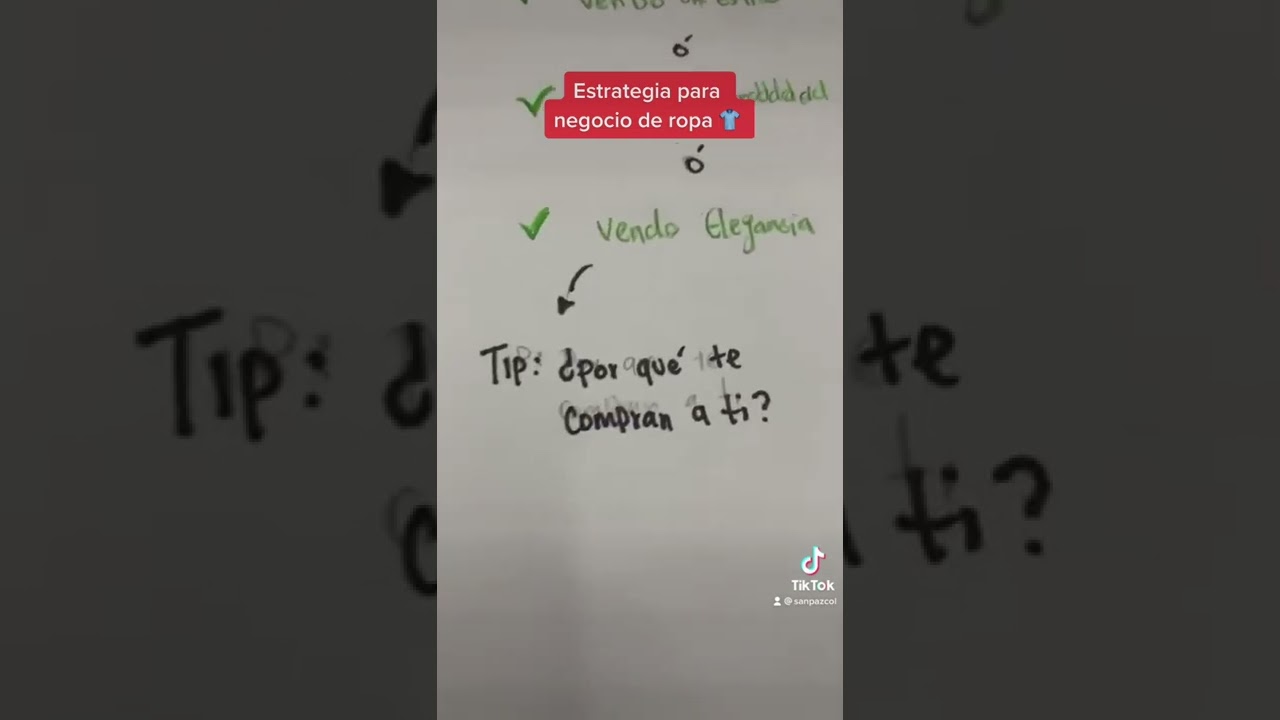 vendo un estilo
ó
Estrategia para
negocio de ropa
ó
vendo Elegancia
Tip: ¿por qué te
compran a ti?
TikTok
@sanpazcol